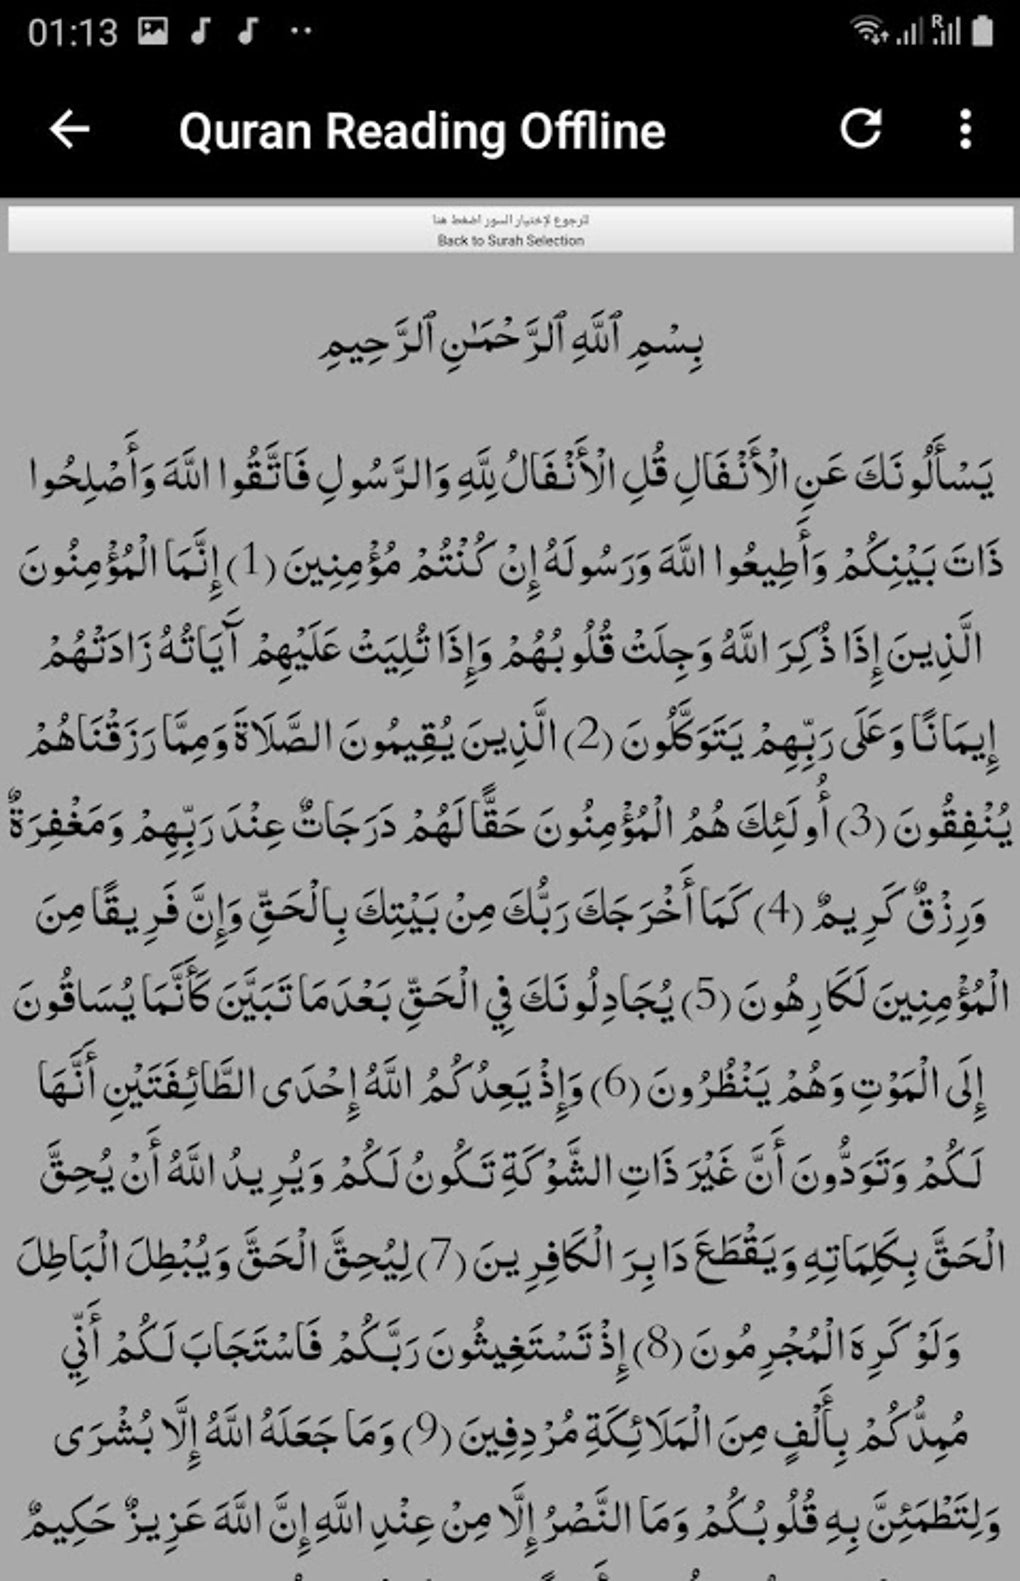 01:13
Quran Reading Offline
للرجوع لإختيار السور اضغط هنا
Back to Surah Selection
بِسْمِ ٱللَّهِ ٱلرَّحْمَٰنِ ٱلرَّحِيمِ
يَسْأَلُونَكَ عَنِ الْأَنْفَالِ قُلِ الْأَنْفَالُ لِلَّهِ وَالرَّسُولِ فَاتَّقُوا اللَّهَ وَأَصْلِحُوا
ذَاتَ بَيْنِكُمْ وَأَطِيعُوا اللَّهَ وَرَسُولَهُ إِنْ كُنْتُمْ مُؤْمِنِينَ (1) إِنَّمَا الْمُؤْمِنُونَ
الَّذِينَ إِذَا ذُكِرَ اللَّهُ وَجِلَتْ قُلُوبُهُمْ وَإِذَا تُلِيَتْ عَلَيْهِمْ آَيَاتُهُ زَادَتْهُمْ
إِيمَانًا وَعَلَى رَبِّهِمْ يَتَوَكَّلُونَ (2) الَّذِينَ يُقِيمُونَ الصَّلَاةَ وَمِمَّا رَزَقْنَاهُمْ
يُنْفِقُونَ (3) أُولَئِكَ هُمُ الْمُؤْمِنُونَ حَقًّا لَهُمْ دَرَجَاتٌ عِنْدَ رَبِّهِمْ وَمَغْفِرَةٌ
وَرِزْقٌ كَرِيمٌ (4) كَمَا أَخْرَجَكَ رَبُّكَ مِنْ بَيْتِكَ بِالْحَقِّ وَإِنَّ فَرِيقًا مِنَ
الْمُؤْمِنِينَ لَكَارِهُونَ (5) يُجَادِلُونَكَ فِي الْحَقِّ بَعْدَمَا تَبَيَّنَ كَأَنَّمَا يُسَاقُونَ
إِلَى الْمَوْتِ وَهُمْ يَنْظُرُونَ (6) وَإِذْ يَعِدُكُمُ اللَّهُ إِحْدَى الطَّائِفَتَيْنِ أَنَّهَا
لَكُمْ وَتَوَدُّونَ أَنَّ غَيْرَ ذَاتِ الشَّوْكَةِ تَكُونُ لَكُمْ وَيُرِيدُ اللَّهُ أَنْ يُحِقَّ
الْحَقَّ بِكَلِمَاتِهِ وَيَقْطَعَ دَابِرَ الْكَافِرِينَ (7) لِيُحِقَّ الْحَقَّ وَيُبْطِلَ الْبَاطِلَ
وَلَوْ كَرِهَ الْمُجْرِمُونَ (8) إِذْ تَسْتَغِيثُونَ رَبَّكُمْ فَاسْتَجَابَ لَكُمْ أَنِّي
مُمِدُّكُمْ بِأَلْفٍ مِنَ الْمَلَائِكَةِ مُرْدِفِينَ (9) وَمَا جَعَلَهُ اللَّهُ إِلَّا بُشْرَى
وَلِتَطْمَئِنَّ بِهِ قُلُوبُكُمْ وَمَا النَّصْرُ إِلَّا مِنْ عِنْدِ اللَّهِ إِنَّ اللَّهَ عَزِيزٌ حَكِيمٌ